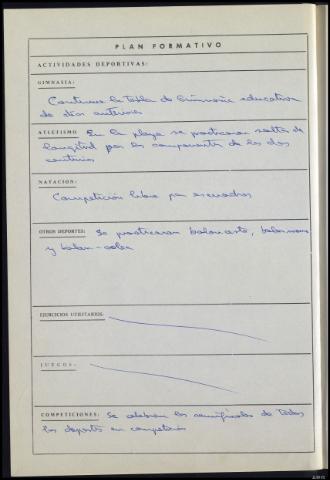 PLAN FORMATIVO
ACTIVIDADES DEPORTIVAS:
GIMNASIA:
Continua la tabla de Gimnasia educativa
de días anteriores
ATLETISMO En la playa se practicaron saltos de
longitud por los componentes de las dos
centurias
NATACION:
Competición libre por escuadras
OTROS DEPORTES: Se practicaron baloncesto, balonmano
y balon-
EJERCICIOS UTILITARIOS:
JUEGOS:
COMPETICIONES: Se celebran las semifinales de todos
los deportes en competición